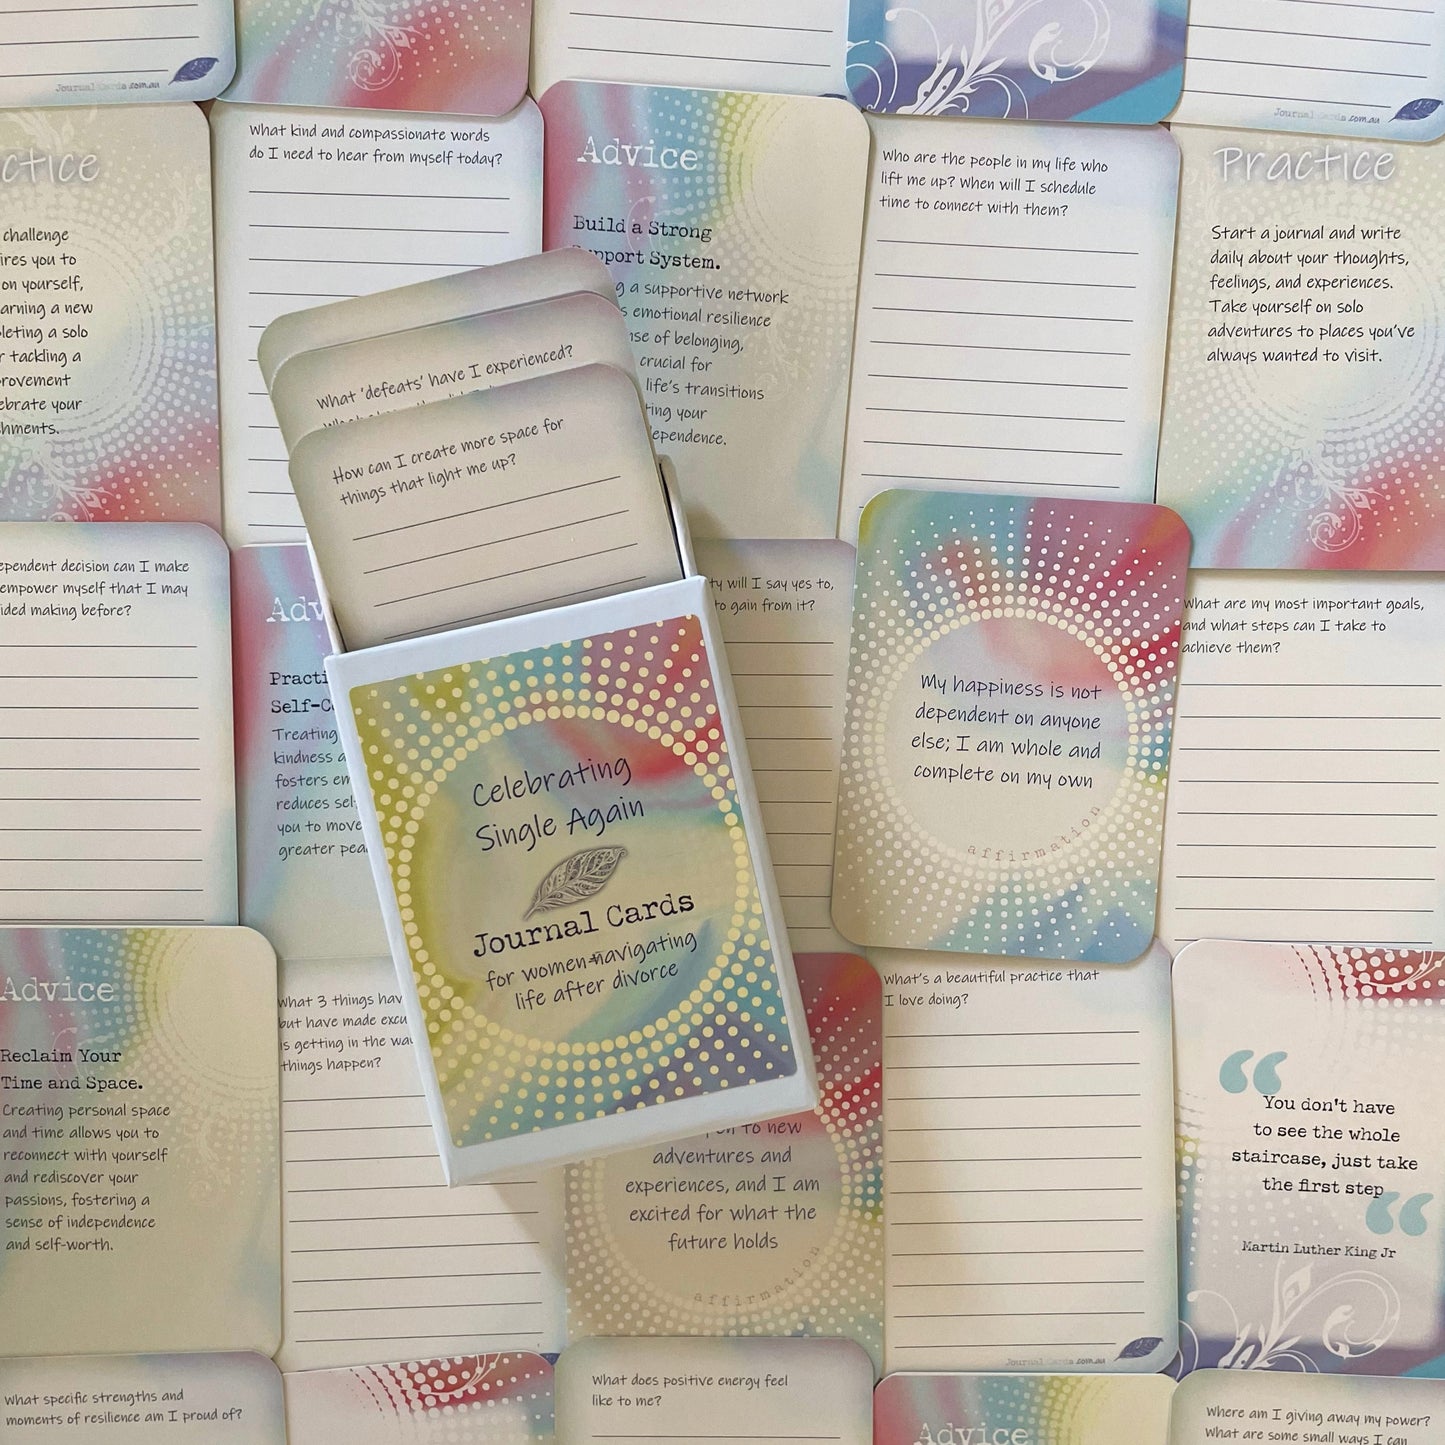 Journal Cards.com.au
Journal Cards.com.au
ctice
challenge
ires you to
on yourself,
arning a new
leting a solo
r tackling a
rovement
ebrate your
hments.
What kind and compassionate words
do I need to hear from myself today?
Advice
Build a Strong
Support System.
g a supportive network
s emotional resilience
nse of belonging,
crucial for
life's transitions
ting your
ependence.
Who are the people in my life who
lift me up? When will I schedule
time to connect with them?
Practice
Start a journal and write
daily about your thoughts,
feelings, and experiences.
Take yourself on solo
adventures to places you've
always wanted to visit.
What 'defeats' have I experienced?
How can I create more space for
things that light me up?
ependent decision can I make
empower myself that I may
ided making before?
Adv
Practi
Self-C
Treating
kindness a
fosters em
reduces sel
you to move
greater pea
ty will I say yes to,
to gain from it?
My happiness is not
dependent on anyone
else; I am whole and
complete on my own
affirmation
What are my most important goals,
and what steps can I take to
achieve them?
Celebrating
Single Again
Journal Cards
for women navigating
life after divorce
Advice
Reclaim Your
Time and Space.
Creating personal space
and time allows you to
reconnect with yourself
and rediscover your
passions, fostering a
sense of independence
and self-worth.
What 3 things hav
but have made excu
is getting in the wa
things happen?
open to new
adventures and
experiences, and I am
excited for what the
future holds
affirmation
What's a beautiful practice that
I love doing?
Journal Cards.com.au
“
You don't have
to see the whole
staircase, just take
the first step
”
Martin Luther King Jr
What specific strengths and
moments of resilience am I proud of?
What does positive energy feel
like to me?
Advice
Where am I giving away my power?
What are some small ways I can